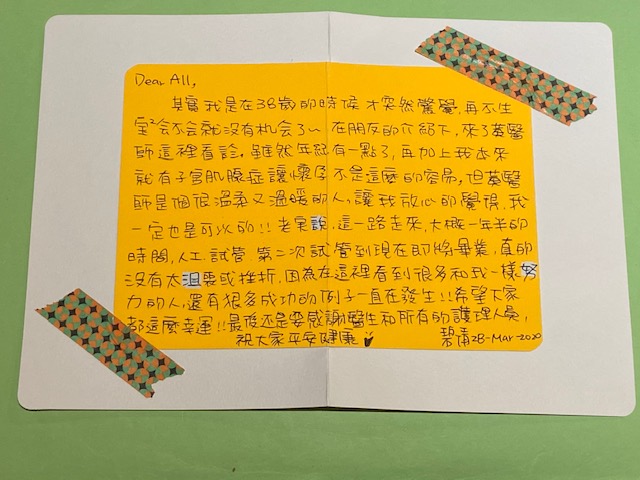 Dear All,
其實我是在38歲的時候才突然驚覺,再不生
寶²會不會就沒有机会了~在朋友的介紹下,來了黃醫
師這裡看診。雖然年紀有一點了,再加上我本來
就有子宮肌腺症讓懷孕不是這麼的容易,但黃醫
師是個很溫柔又溫暖的人,讓我放心的覺得,我
一定也是可以的!!老實說,這一路走來,大概一年半的
時間,人工.試管.第二次試管到現在即將畢業,真的
沒有太沮喪或挫折,因為在這裡看到很多和我一樣努
力的人,還有很多成功的例子一直在發生!!希望大家
都這麼幸運!!最後還是要感謝醫生和所有的護理人員,
祝大家平安健康 碧青28-Mar-2020